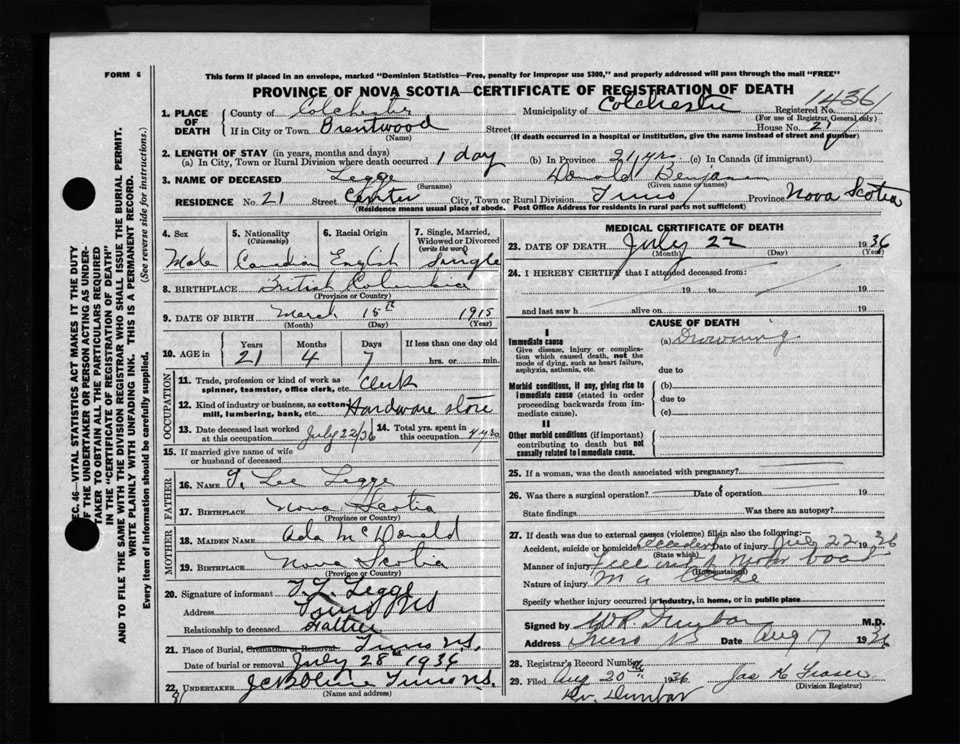 FORM 6
This form if placed in an envelope, marked "Dominion Statistics—Free, penalty for improper use $300," and properly addressed will pass through the mail "FREE"
PROVINCE OF NOVA SCOTIA—CERTIFICATE OF REGISTRATION OF DEATH
1. PLACE OF DEATH
County of Colchester Municipality of Colchester Registered No. 1436
(For use of Registrar General only)
If in City or Town Brentwood Street House No. 21
(Name) (If death occurred in a hospital or institution, give the name instead of street and number)
2. LENGTH OF STAY (in years, months and days)
(a) In City, Town or Rural Division where death occurred 1 day (b) In Province 21 yrs (c) In Canada (if immigrant)
3. NAME OF DECEASED Legge Donald Benjamin
(Surname) (Given name or names)
RESIDENCE No. 21 Street Center City, Town or Rural Division Truro Province Nova Scotia
(Residence means usual place of abode. Post Office Address for residents in rural parts not sufficient)
4. Sex 5. Nationality (Citizenship) 6. Racial Origin 7. Single, Married, Widowed or Divorced (write the word)
Male Canadian English Single
8. BIRTHPLACE British Columbia
(Province or Country)
9. DATE OF BIRTH March 15th 1915
(Month) (Day) (Year)
10. AGE in Years Months Days If less than one day old
21 4 7 hrs. or min.
OCCUPATION
11. Trade, profession or kind of work as spinner, teamster, office clerk, etc. Clerk
12. Kind of industry or business, as cotton mill, lumbering, bank, etc. Hardware store
13. Date deceased last worked at this occupation July 22/36 14. Total yrs. spent in this occupation 4 yrs
15. If married give name of wife or husband of deceased
FATHER
16. NAME T. Lee Legge
17. BIRTHPLACE Nova Scotia
(Province or Country)
MOTHER
18. MAIDEN NAME Ada McDonald
19. BIRTHPLACE Nova Scotia
(Province or Country)
20. Signature of informant T. L. Legge
Address Truro NS
Relationship to deceased Father
21. Place of Burial, Cremation or Removal Truro NS.
Date of burial or removal July 28th 1936
22. UNDERTAKER Truro NS.
(Name and address)
MEDICAL CERTIFICATE OF DEATH
23. DATE OF DEATH July 22 1936
(Month) (Day) (Year)
24. I HEREBY CERTIFY that I attended deceased from:
19 to 19
and last saw h alive on 19
CAUSE OF DEATH
I
Immediate cause (a) Drowning
Give disease, injury or complication which caused death, not the mode of dying, such as heart failure, asphyxia, asthenia, etc.
due to
Morbid conditions, if any, giving rise to immediate cause (stated in order proceeding backwards from immediate cause).
(b)
due to
(c)
II
Other morbid conditions (if important) contributing to death but not causally related to immediate cause.
25. If a woman, was the death associated with pregnancy?
26. Was there a surgical operation? Date of operation 19
State findings Was there an autopsy?
27. If death was due to external causes (violence) fill in also the following:
Accident, suicide or homicide? Accident Date of injury July 22 1936
(State which)
Manner of injury Fell out of motor boat
(How sustained)
Nature of injury
Specify whether injury occurred in industry, in home, or in public place
Signed by W.R. Dunbar M.D.
Address Truro NS Date Aug 17 1936
28. Registrar's Record Number
29. Filed Aug 20th 1936 Jas K Fraser
(Division Registrar)
Dr. Dunbar
SEC. 46—VITAL STATISTICS ACT MAKES IT THE DUTY
OF THE UNDERTAKER OR PERSON ACTING AS UNDERTAKER
TO OBTAIN ALL THE PARTICULARS REQUIRED
IN THE "CERTIFICATE OF REGISTRATION OF DEATH"
AND TO FILE THE SAME WITH THE DIVISION REGISTRAR WHO SHALL ISSUE THE BURIAL PERMIT.
WRITE PLAINLY WITH UNFADING INK. THIS IS A PERMANENT RECORD.
Every item of information should be carefully supplied. (See reverse side for instructions.)